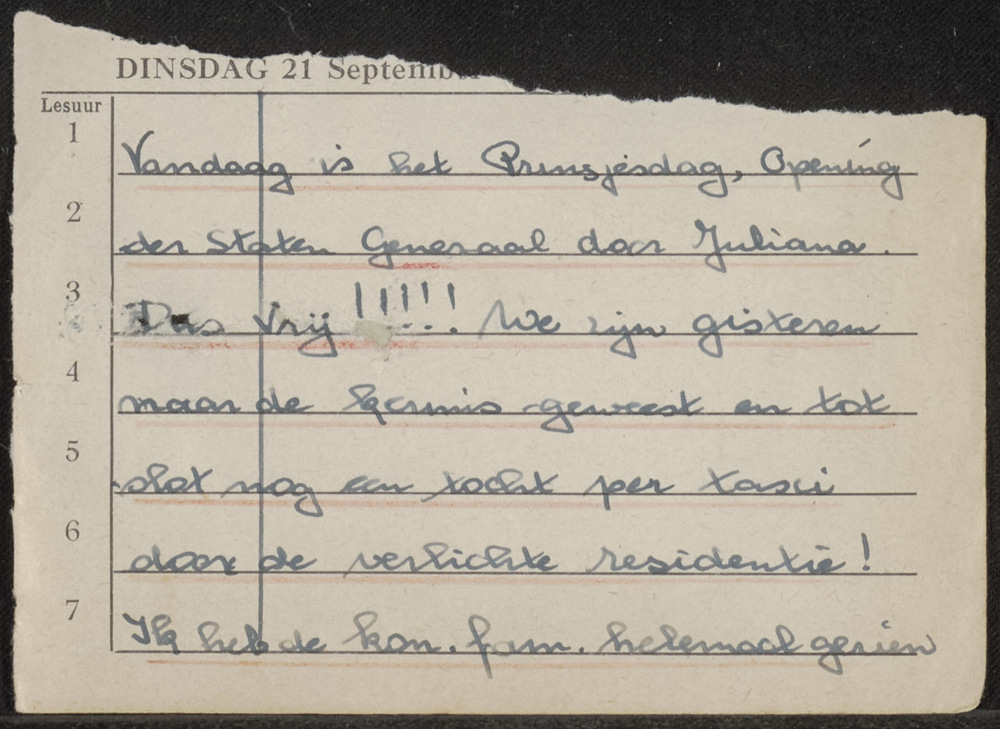 DINSDAG 21 Septemb
Lesuur
1 Vandaag is het Prinsjesdag, Opening
2 der Staten Generaal door Juliana.
3 Dus vrij !!!!! We zijn gisteren
4 naar de kermis geweest en tot
5 slot nog een tocht per taxi
6 door de verlichte residentie!
7 Ik heb de kon. fam. helemaal gezien